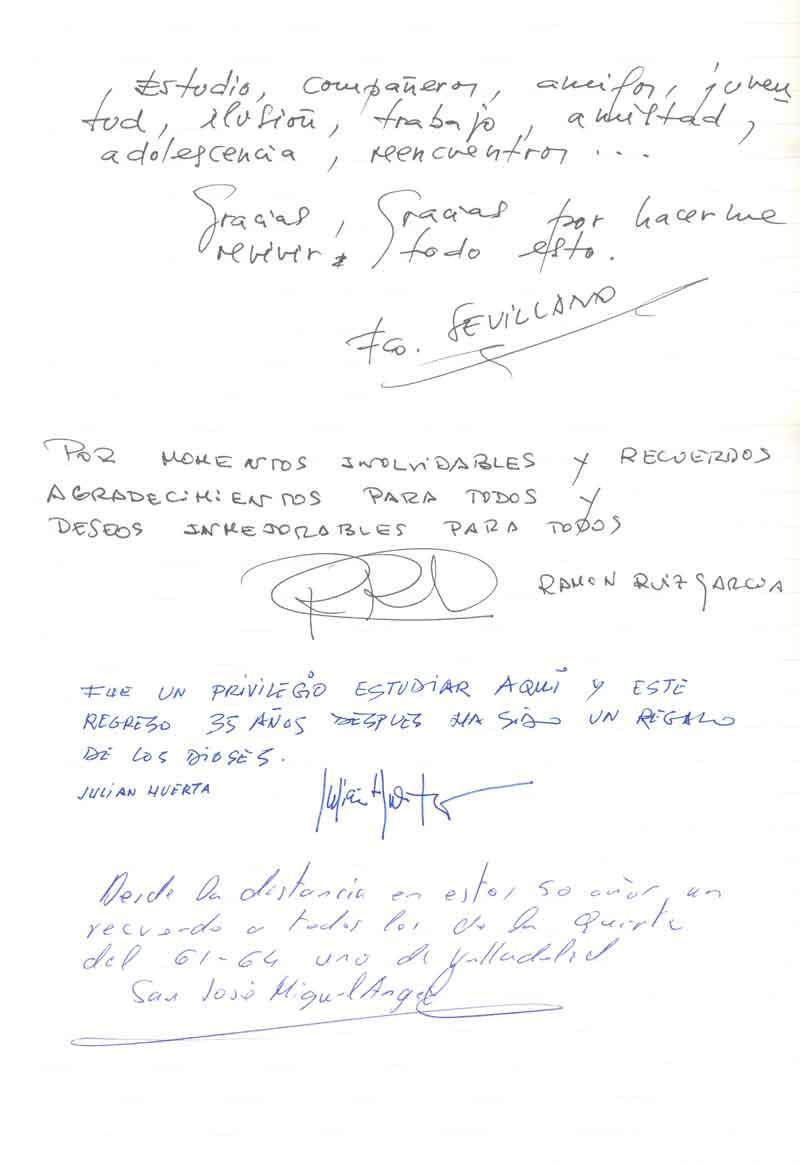 , Estudio, compañeros, amigos, juven
tud, ilusión, trabajo, amistad,
adolescencia, reencuentros ...
Gracias, Gracias por hacerme
revivir todo esto.
Fco. SEVILLANO
POR MOMENTOS INOLVIDABLES Y RECUERDOS
AGRADECIMIENTOS PARA TODOS Y
DESEOS INMEJORABLES PARA TODOS
RAMON RUIZ GARCIA
FUE UN PRIVILEGIO ESTUDIAR AQUÍ Y ESTE
REGRESO 35 AÑOS DESPUES HA SIDO UN REGALO
DE LOS DIOSES.
JULIAN HUERTA
Julián Huerta
Desde la distancia en estos 50 años, un
recuerdo a todos los de la Quinta
del 61-64 uno de Valladolid
San José Miguel Angel